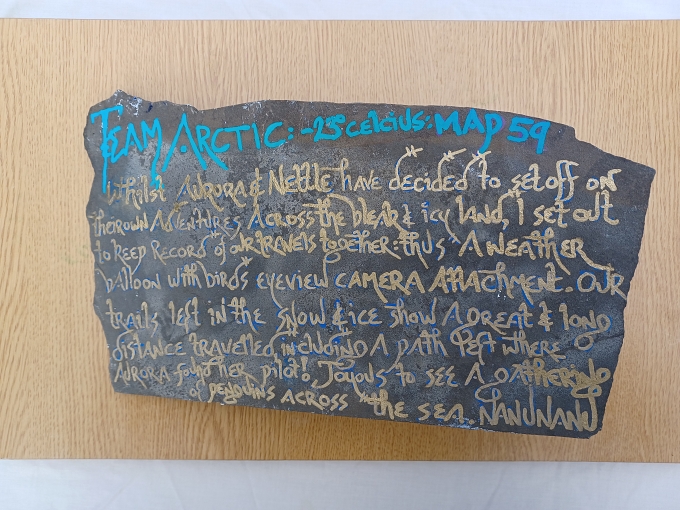 TEAM ARCTIC: -25° celcius: MAP 59
Whilst AURORA & Nettle have decided to set off on
their own Adventures, Across the bleak & icy land, I set out
to keep Record of our travels together: thus A weather
balloon with birds eyeview CAMERA Attachment. OUR
trails left in the snow & ice show A great & long
distance travelled, including A path left where
AURORA found her pilot! Joyous to see A gathering
of penguins Across the sea. NANUNANU